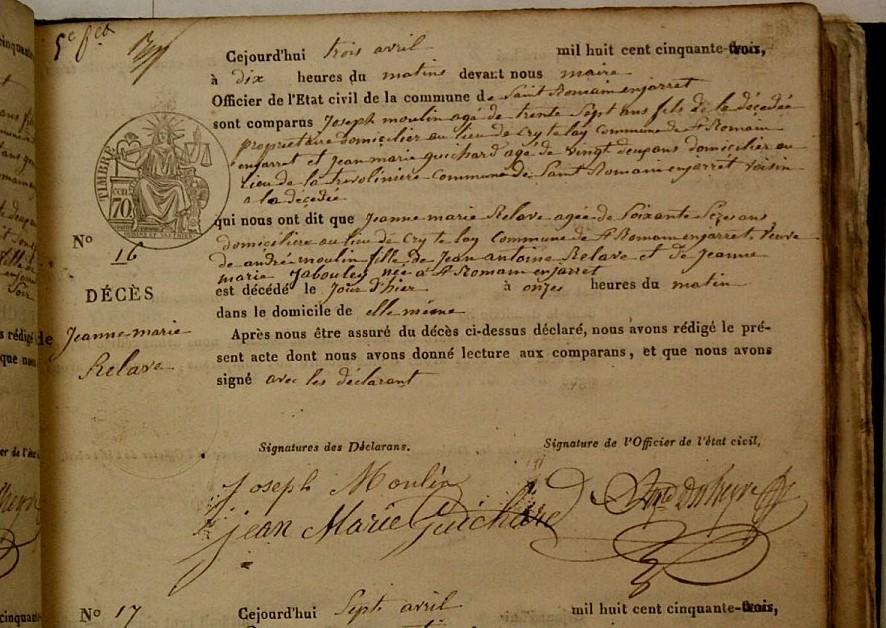 5e f.et
Cejourd'hui trois avril mil huit cent cinquante-trois,
à dix heures du matins devant nous maire
Officier de l'Etat civil de la commune de Saint Romain enjarret
sont comparus Joseph moulin agé de trente Sept ans fils de la décedée
proprietaire domicilier au lieu de Crytelay Commune de St Romain
enjarret et Jean marie guichard agé de vingt deux ans domicilier au
lieu de la Commune de Saint Romain enjarret voisin
a la décedée
TIMBRE
cen
70
qui nous ont dit que Jeanne marie Relave agée de Soixante Seze ans
domiciliere au lieu de Crytelay Commune de St Romain enjarret, veuve
de andré moulin fille de Jean antoine Relave et de Jeanne
marie Jabouley née a St Romain enjarret
No 16
DÉCÈS
Jeanne marie
Relave
est décédé le Jour d'hier à onzes heures du matin
dans le domicile de elle même
Après nous être assuré du décès ci-dessus déclaré, nous avons rédigé le pré-
sent acte dont nous avons donné lecture aux comparans, et que nous avons
signé avec les déclarant
Signatures des Déclarans. Signature de l'Officier de l'état civil,
Joseph Moulin
Jean Marie Guichard
No 17 Cejourd'hui Sept avril mil huit cent cinquante-trois,